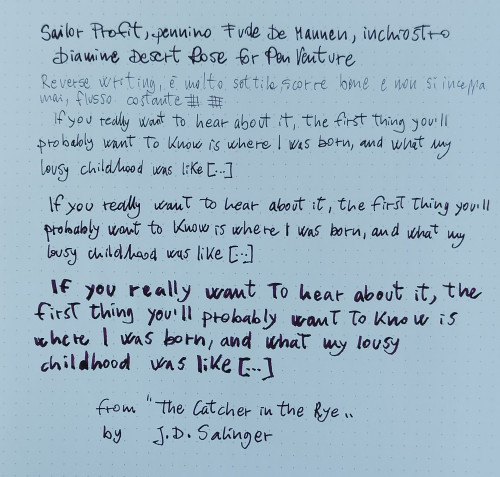 Sailor Profit, pennino Fude De Mannen, inchiostro
Diamine Desert Rose for Pen Venture
Reverse writing, è molto sottile, scorre bene e non si inceppa
mai, flusso costante
If you really want to hear about it, the first thing you'll
probably want to know is where I was born, and what my
lousy childhood was like [...]
If you really want to hear about it, the first thing you'll
probably want to know is where I was born, and what my
lousy childhood was like [...]
If you really want to hear about it, the
first thing you'll probably want to know is
where I was born, and what my lousy
childhood was like [...]
from "The Catcher in the Rye"
by J.D. Salinger